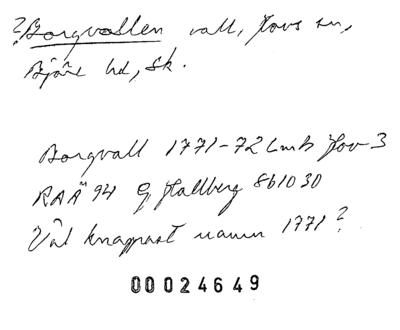 ?Borgvallen vall, Hovs sn,
Bjäre hd, Sk.
Borgvall 1771-72 Lmh Hov 3
RAÄ 94 G Hallberg 861030
Väl knappast namn 1771?
00024649